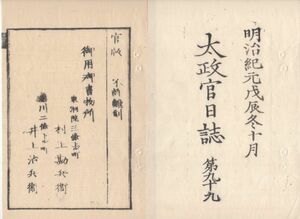 明治紀元戊辰冬十月
太政官日誌
第九十九
官版
不許飜刻
御用御書物所
東洞院三條上ル町
村上勘兵衛
堀川二條下ル町
井上治兵衛